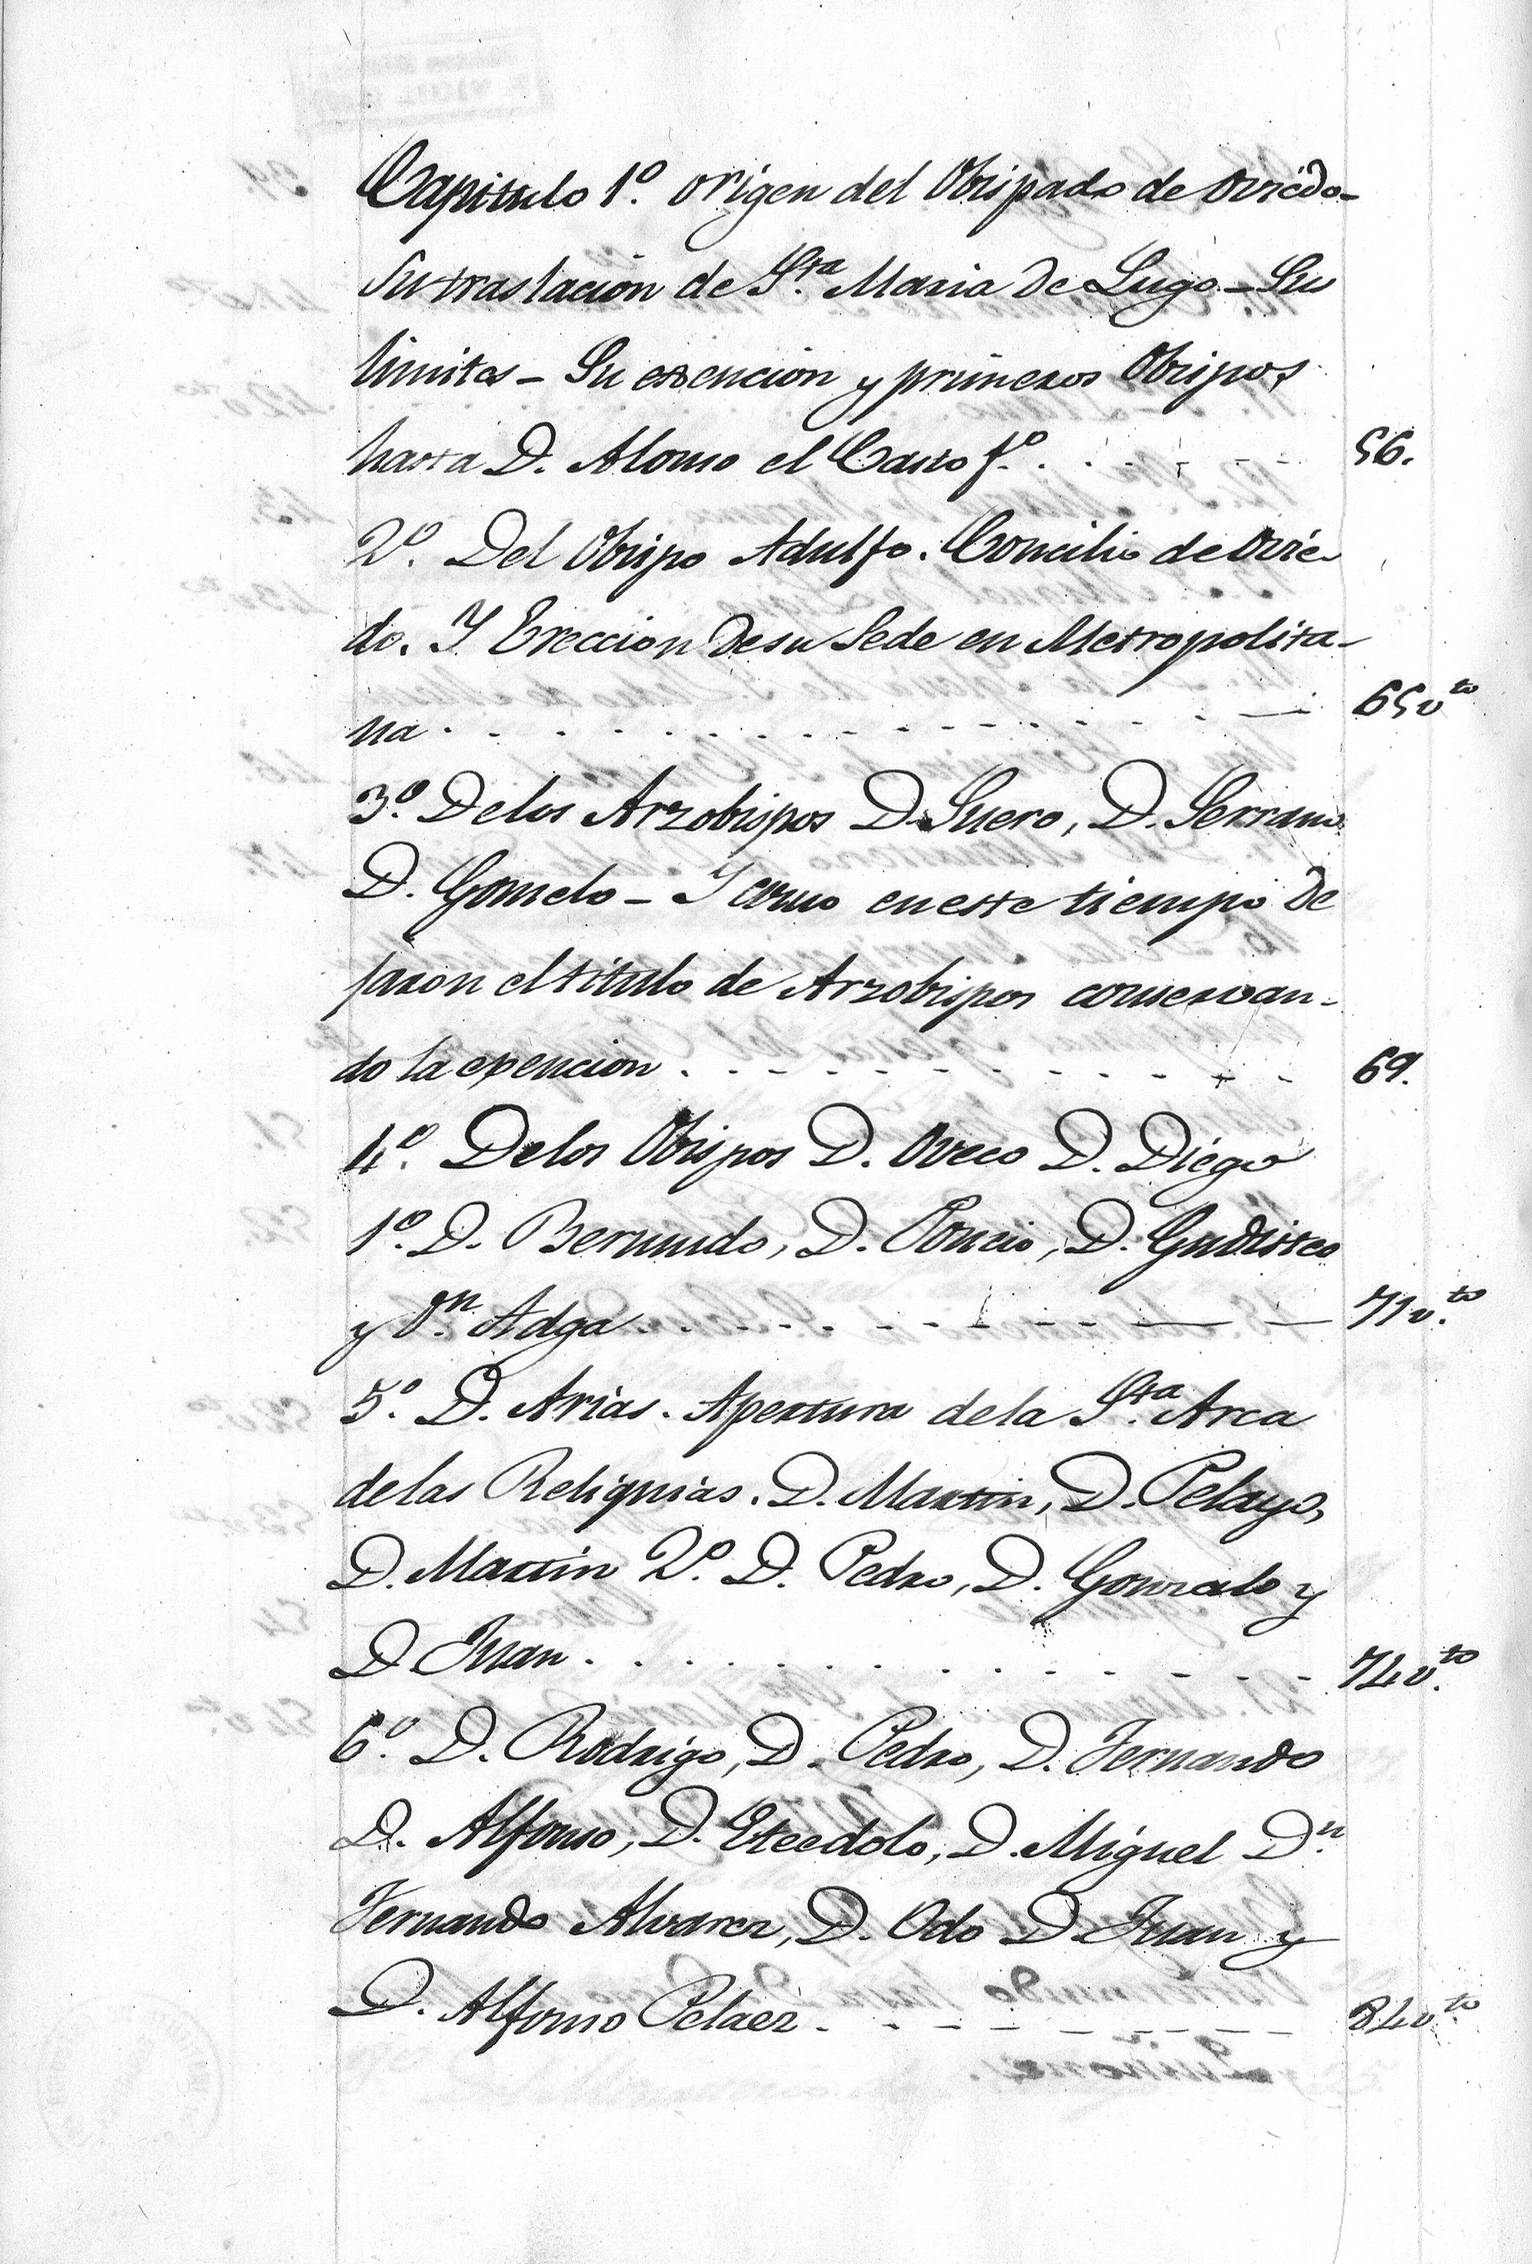 Capitulo 1º. origen del Obispado de Oviedo-
Su traslacion de Sta. Maria de Lugo - Su
limites - Su esencion y primeros Obispos
hasta D. Alonso el Casto fº. . . . . . . 56.
2º. Del Obispo Adulfo. Concilio de Ovie-
do. Y Ereccion de su Sede en Metropolita-
na . . . . . . . . . . . . . . . 65 vto
3º. De los Arzobispos D. Suero, D. Serrano
D. Gomelo - Y como en este tiempo de
jaron el titulo de Arzobispos conservan-
do la exencion . . . . . . . . . . . 69.
4º. De los Obispos D. Oveco D. Diego
1º. D. Bermudo, D. Poncio, D. Gudisteo
y Dn. Adga . . . . . . . . . . 71 vto.
5º. D. Arias. Apertura de la Sta. Arca
de las Reliquias. D. Martin, D. Pelayo,
D. Martin 2º. D. Pedro, D. Gonzalo y
D. Juan . . . . . . . . . . . . . 74 vto.
6º. D. Rodrigo, D. Pedro, D. Fernando
D. Alfonso, D. Etcedolo, D. Miguel Dn.
Fernando Alvarez, D. Odo D. Juan y
D. Alfonso Pelaez . . . . . . . . . 84 vto.